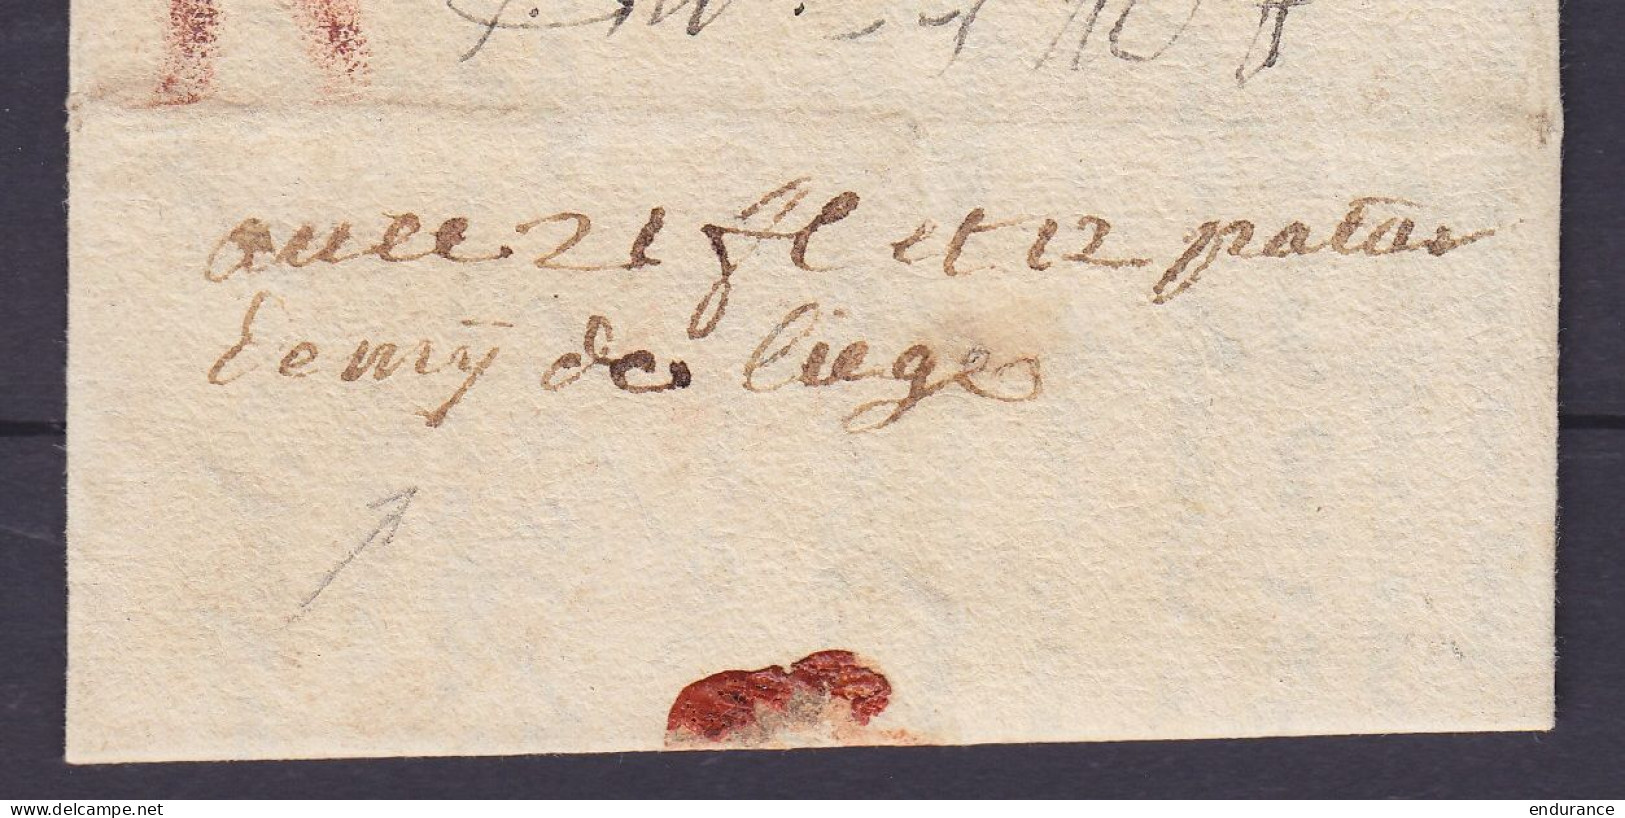 avec 21 fl et 12 patar
demÿ de liege
www.delcampe.net
endurance